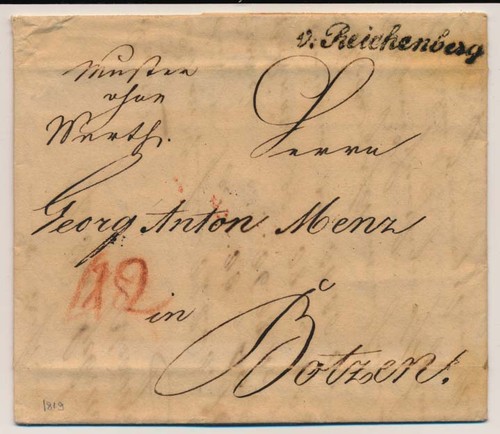 v: Reichenberg
Muster
ohne
Werth.
Herrn
Georg Anton Menz
12
in
Botzen.
1819